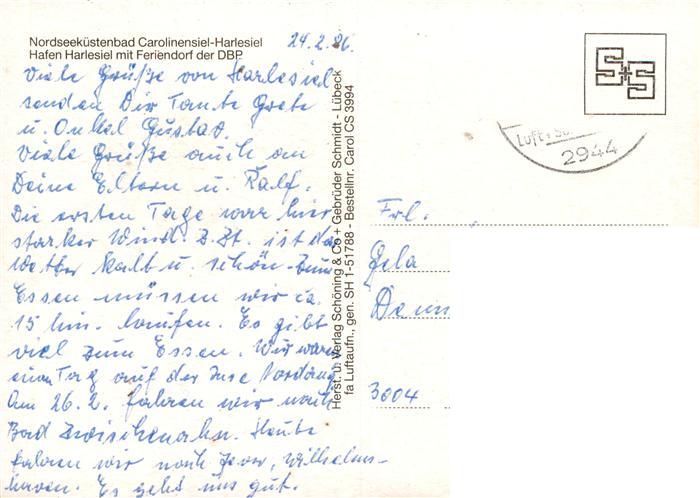 Nordseeküstenbad Carolinensiel-Harlesiel
Hafen Harlesiel mit Feriendorf der DBP
24.2.86.
Viele Grüße von Harlesiel
senden Dir Tante Grete
u. Onkel Gustav.
Viele Grüße auch an
Deine Eltern u. Ralf.
Die ersten Tage war hier
starker Wind. Z.Zt. ist das
Wetter kalt u. schön. Zum
Essen müssen wir ca.
15 Min. laufen. Es gibt
viel zum Essen. Wir waren
einen Tag auf der Insel
Am 26.2. fahren wir nach
Bad Zwischenahn. Heute
fahren wir nach Jever, Wilhelms-
haven. Es geht uns gut.
Herst. u. Verlag Schöning & Co + Gebrüder Schmidt - Lübeck
fa Luftaufn., gen. SH 1-51788 - Bestellnr. Carol CS 3994
S+S
Luft
2944
Frl.
Gela
3004